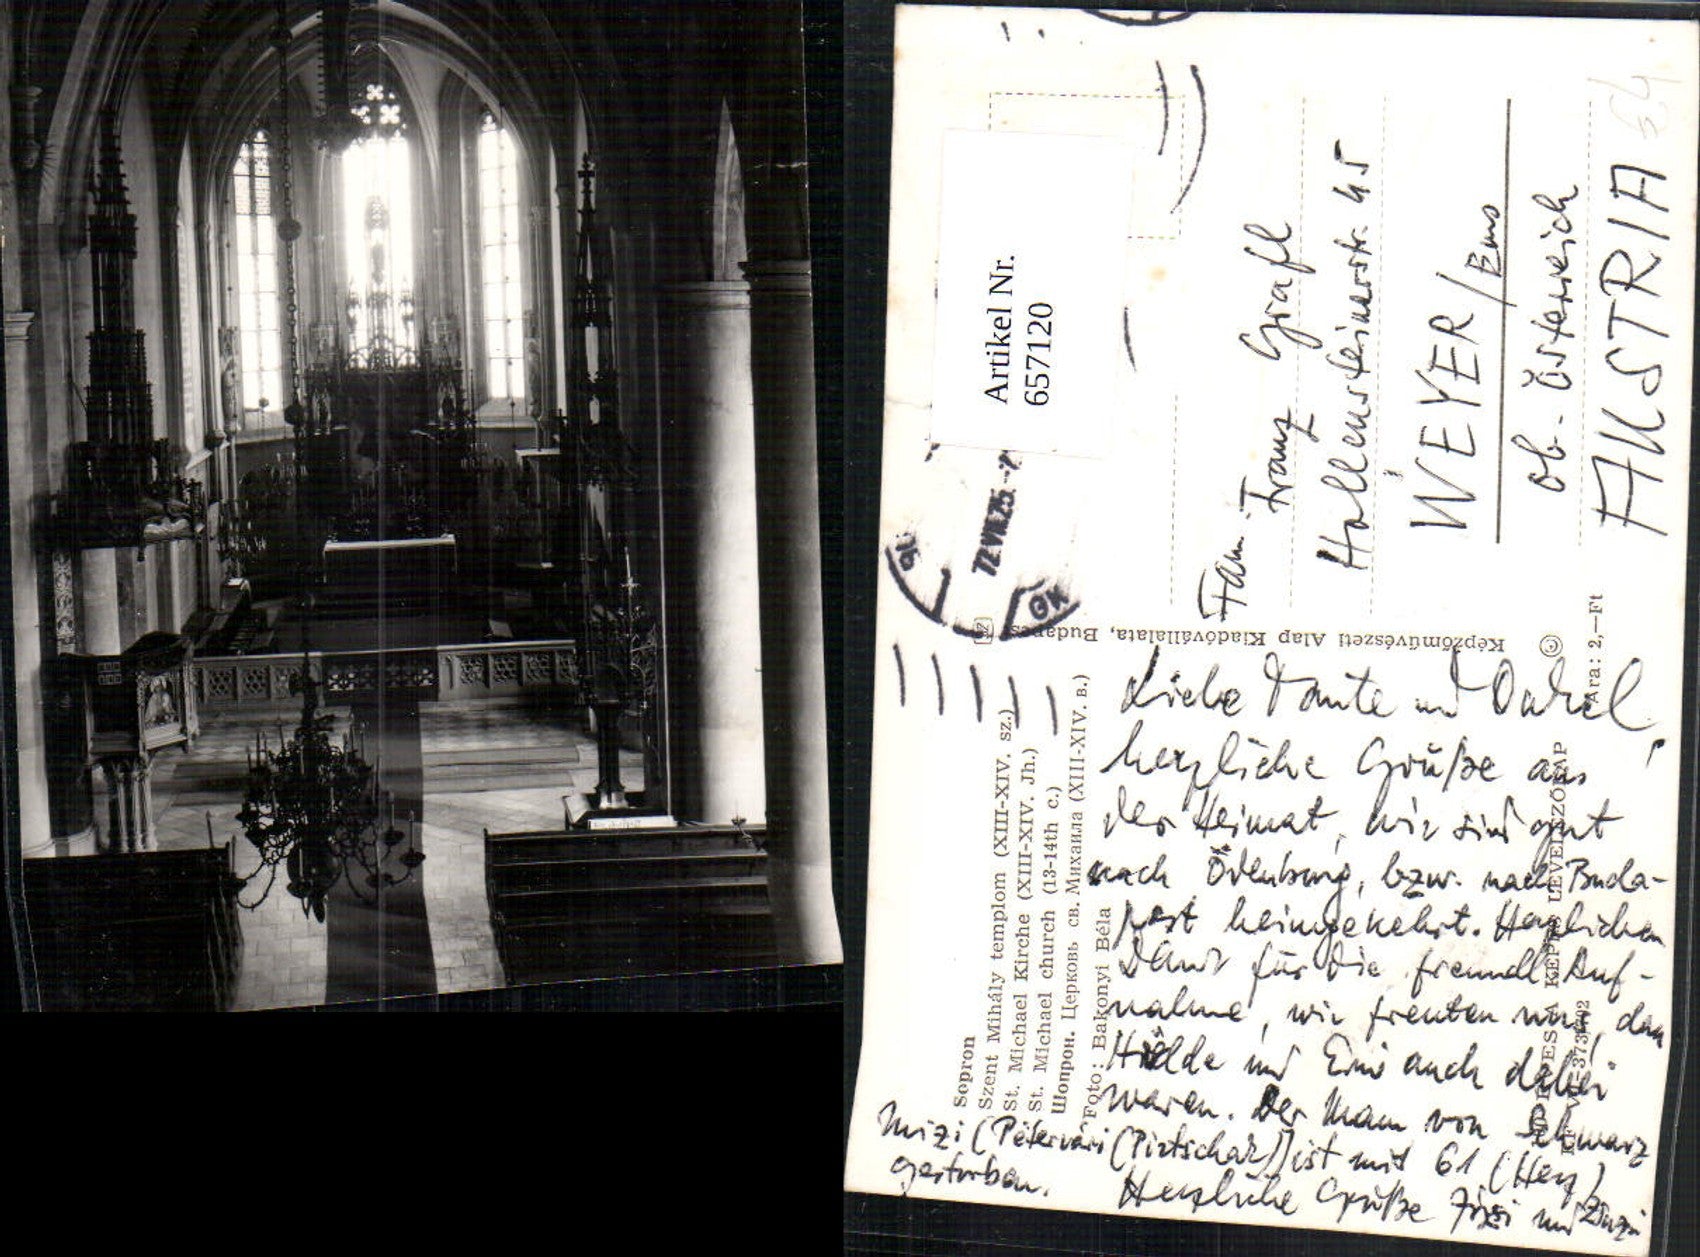 Artikel Nr.
657120
Fam.
Franz Grafl
Hollensteinerstr. 45
WEYER/Enns
Ob-Österreich
AUSTRIA
64
Képzőművészeti Alap Kiadóvállalata, Budapest
Ára: 2,—Ft
Sopron
Szent Mihály templom (XIII-XIV. sz.)
St. Michael Kirche (XIII-XIV. Jh.)
St. Michael church (13-14th c.)
Шопрон. Церковь св. Михаила (XIII-XIV. в.)
Foto: Bakonyi Béla
Liebe Tante und Onkel!
herzliche Grüße aus
der Heimat, wir sind gut
nach Ödenburg, bzw. nach Buda-
pest heimgekehrt. Herzlichen
Dank für die freundl. Auf-
nahme, wir freuten uns, dass
Hilde und Erni auch dabei
waren. Der Mann von Schwarz
Mizi (Pétervári (Pirtschak)) ist mit 61 (Herz)
gestorben.
Herzliche Grüße
und